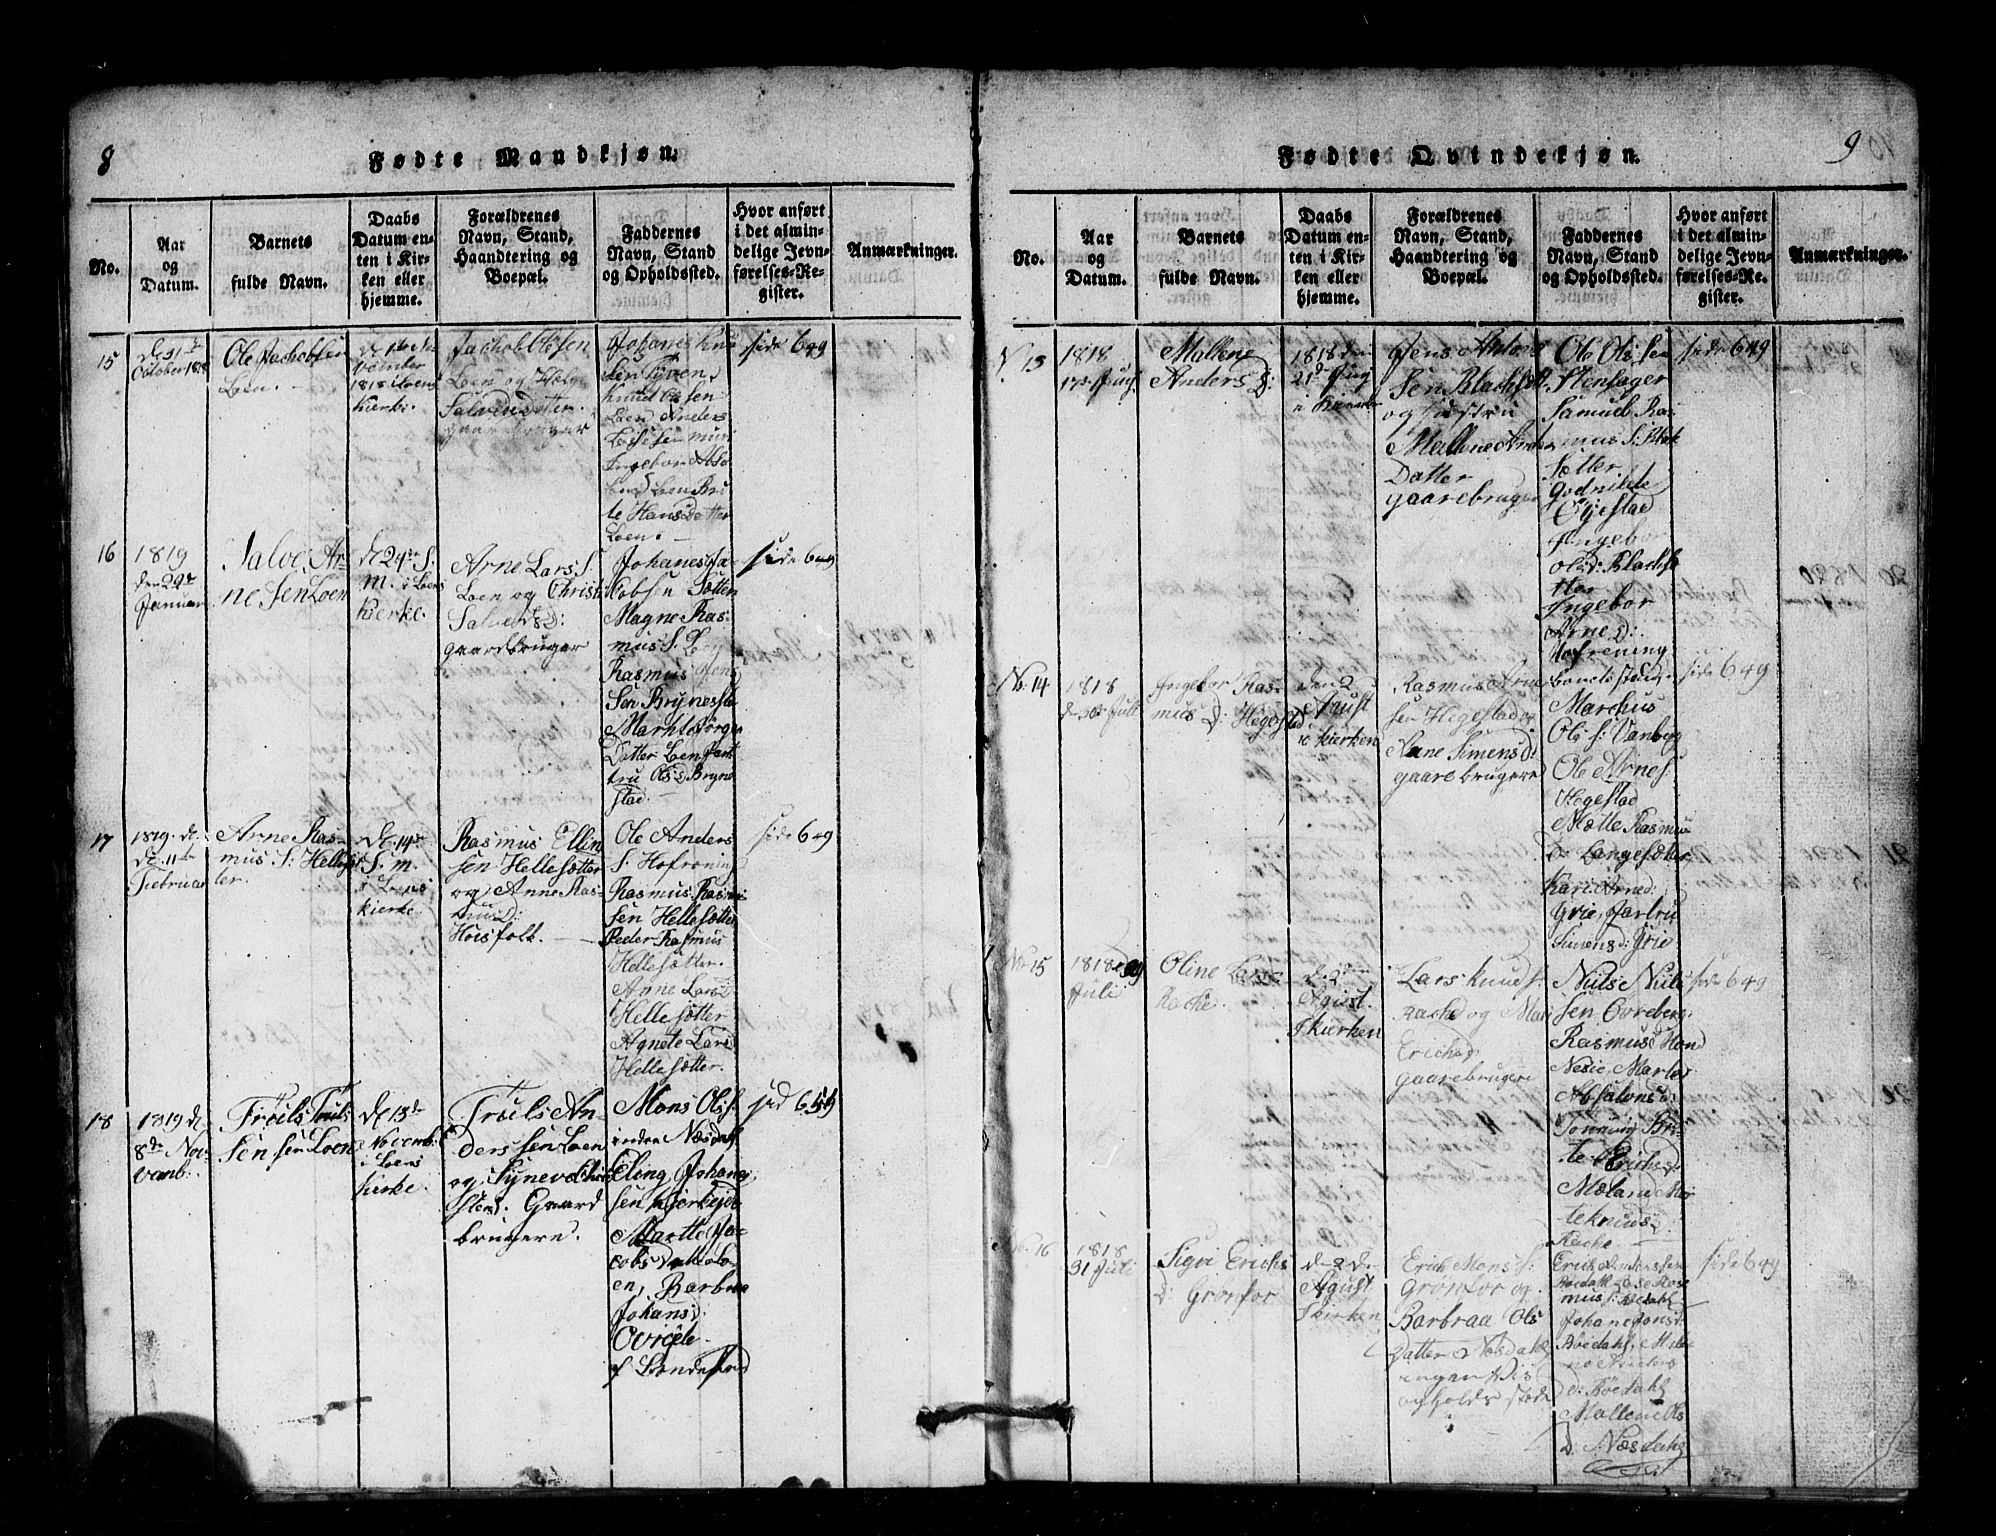 8
Fødte Mandkjøn.
No.
Aar
og
Datum.
Barnets
fulde Navn.
Daabs
Datum en-
ten i Kir-
ken eller
hjemme.
Forældrenes
Navn, Stand,
Haandtering og
Boepæl.
Faddernes
Navn, Stand
og Opholdssted.
Hvor anført
i det almin-
delige Jevn-
førelses-Re-
gister.
Anmærkninger.
15
October 1818
Ole Jachobsen
Loen.
1818 i Loens
Kierke.
Jachob Olesen
Loen og
Salvensdatter.
gaardbruger
Johanes Knu
sen Tyven
Knud Olsen
Loen Anders
Ingebor
Loen Bri
te Hans Datter
Loen.
side 649
16
1819
den 22de
Januar
Salve Ar-
ne Sen Loen
de 24de S.
M. i Loens
Kierke.
Arne Lars S.
Loen og Christi
Salves D:
gaardbruger
Johanes Ja-
cobsen Sætten
Magne Ras-
mus S. Loen
Rasmus Jens
Sen Brynesta
Marthe Jørgen
Datter Loen Jart
tru Ols D Bryne
stad.
side 649
17
1819. de
de 11te
Februar
Arne Ras-
mus S: Hellesæt
ter.
de 14de
S. m.
i Loens
kierke.
Rasmus Ellin
sen Hellesøtter
og Anne Ras-
mus D:
Huusfolk.
Ole Anders
S. Hofrening
Rasmus Rasmu
sen Hellesøtter
Peder Rasmus
Hellesøtter.
Anne Lars D
Hellesøtter
Agnete Lars
Hellesøtter.
side 649
18
1819 de
8de Nov-
vemb.
Trøels Trøls
Sen Loen
de 13de
Novemb.
i Loens
Kirke.
Trøels An
ders sen Loen
og Synneve Chri
stens D. Gaard
brugere.
Mons Ols S.
indre Næsdahl
Eling Johane
sen
Marthe Ja-
cobs Datter Lo-
en, Barbra
Johans D:
Ovreide
af Bondestand
sid 651
9
Fødte Qvindekjøn.
No.
Aar
og
Datum.
Barnets
fulde Navn.
Daabs
Datum en-
ten i Kir-
ken eller
hjemme.
Forældrenes
Navn, Stand,
Haandtering og
Boepæl.
Faddernes
Navn, Stand
og Opholdssted.
Hvor anført
i det almin-
delige Jevn-
førelses-Re-
gister.
Anmærkninger.
No 13
1818
17de Juny
Mallene
Anders D:
1818 den
21de Juny
i Kierken
Jens Anders
Sen Blachset
og Hustru
Mallene Anders
Datter
gaarebruger
Ole Olsen
Stensager
Samuel Ras-
mus S: Blak
sætter
Godnikle
Eyestad
Ingebor
Ols D: Blachsæ
tter
Ingebor
Arne D:
Hofrening
bondestand.
side 649
No. 14
1818
d. 30te Juli
Ingebor Ras-
mus D: Hegestad
den 2
Agust
i kierken
Rasmus Arne
sen Hegestad og
Anne Simens D:
gaarebrugere
Marchus
Ols S: Vanberg
Ole Arnes S:
Hegestad
Mætte Rasmus
D: Langesæter
Kari Arne D:
Yrie, Jartru
Simens D: Yrie
side 649
No 15
1818 d 29
Juli
Oline Lars
Rache
d. 2den
Agust.
I kierken
Lars Knud S:
Rache og Mari
Erichs D:
gaarebrugere
Niils Niil
sen Ovreberg
Rasmus Mon
Nesie Marte
Absalons D:
Tonning Bri-
te Erichs D
Møland Mar
te Knuds D.
Rache
side 649
No. 16
1818
31 Juli
Sigri Erichs
D: Grønfor
d. 2 de
Agust
I kirken
Erich Mons S:
Grønfor og
Barbraa Ols
Datter Næsdahl
ingen Vis
opholds sted
Erich Anderssen
Bødahl Ole Ras
mus S: Bødahl
Johane Jons D:
Bøedahl, Male
ne Anders
D: Bøedahl
Mallene Ols
D. Næsdahl
side 649